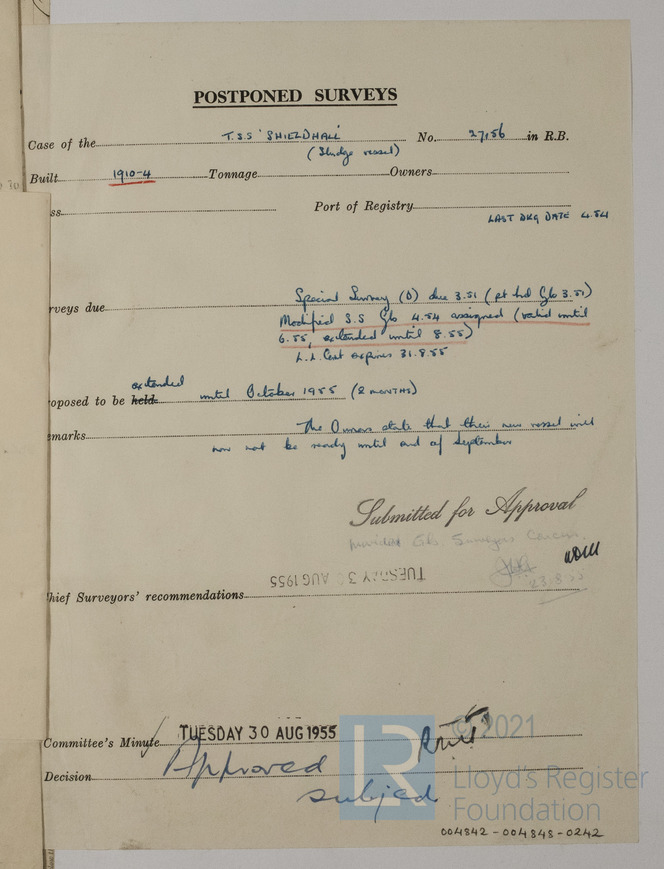 POSTPONED SURVEYS
Case of the T.S.S 'SHIELDHALL' No. 27156 in R.B.
(Sludge vessel)
Built 1910-4 Tonnage Owners
ss Port of Registry
LAST DKG DATE 4.54
rveys due Special Survey (D) due 3.51 (pt hld Glb 3.51)
Modified S.S Glb 4.54 assigned (valid until
6.55, extended until 8.55)
L.L. Cert expires 31.8.55
extended
oposed to be held until October 1955 (2 MONTHS)
emarks The Owners state that their new vessel will
now not be ready until end of September
Submitted for Approval
provided Glb. Surveyors Concur.
23.8.55
TUESDAY 30 AUG 1955
hief Surveyors' recommendations
Committee's Minute TUESDAY 30 AUG 1955
Decision Approved
subject
© 2021
LR
Lloyd's Register
Foundation
004842-004848-0242